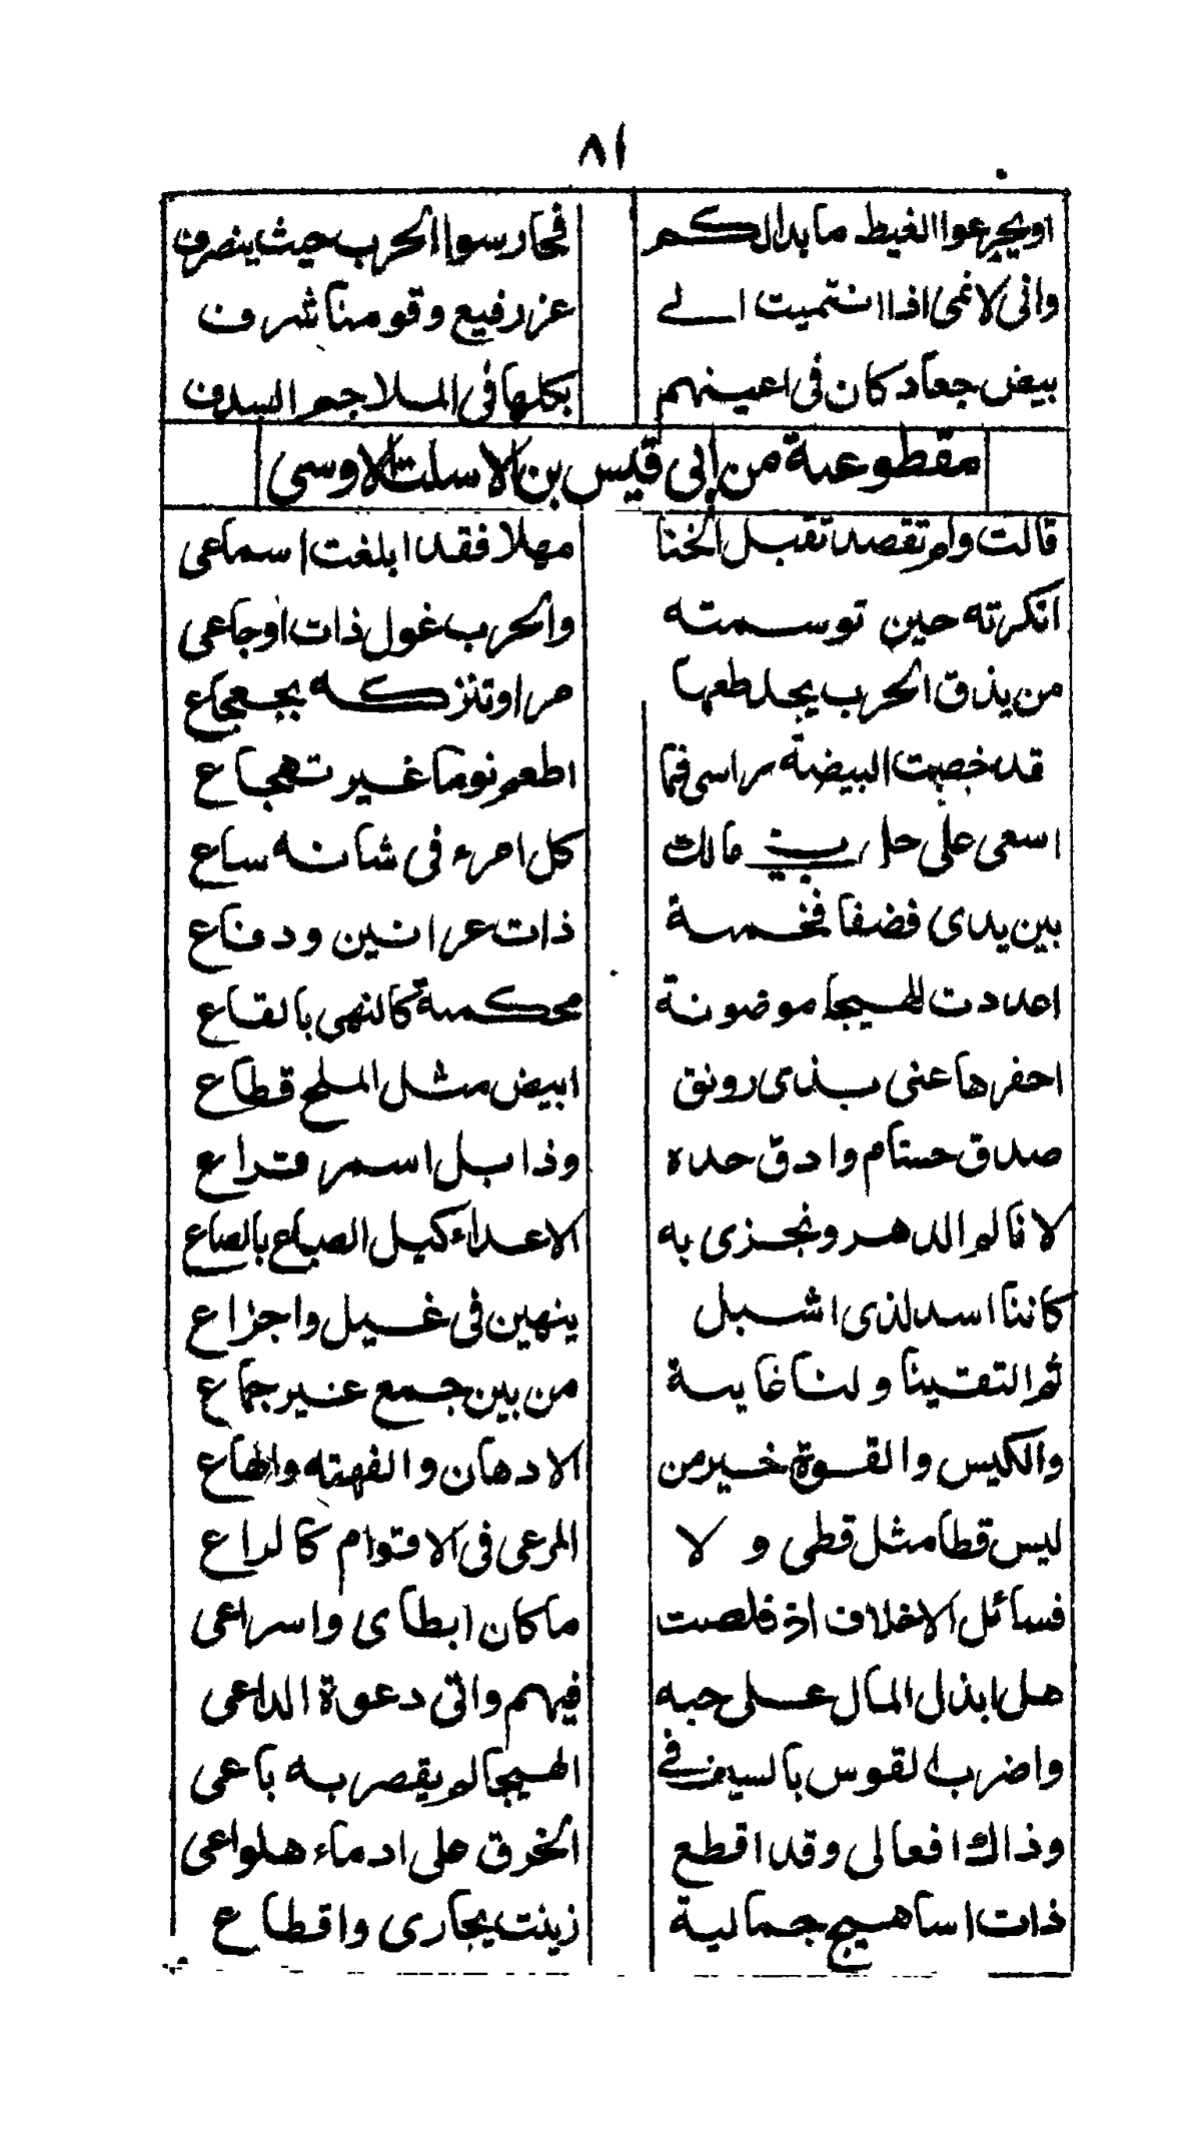 ٨١
او يجرعوا الغيط ما بدالكم فحارسوا الحرب حيث ينصرف
واني لانمى اذا انتميت الے عز رفيع وقومنا شرف
بيض جعاد كان فى اعينهم بكلها فى الملاحم السدف
مقطوعة من ابي قيس بن الاسلت الاوسي
قالت ولم تقصد تقبل الخنا مهلا فقد ابلغت اسماعى
انكرته حين توسمته والحرب غول ذات اوجاعى
من يذق الحرب يجد طعمها مرا وتنزكه بجعجاع
قد خصبت البيضة راسى فما اطعم نوما غير تهجاع
اسعى على حل بني مالك كل امرء فى شانه ساع
بين يدى فضفا فخمسة ذات عرانين ودفاع
اعددت للهيجا موضونة محكمة كالنهى بالقاع
احفرها عنى بذى رونق ابيض مثل الملح قطاع
صدق حسام وادق حده وذابل اسمر قراع
لا نالم الدهر ونجزى به الاعداء كيل الصاع بالصاع
كاننا اسد لذى اشبل ينهين فى غيل واجزاع
ثم التقينا ولنا غاية من بين جمع غير جماع
والكيس والقوة خير من الادهان والفهته والهاع
ليس قطا مثل قطى ولا المرعى فى الاقوام كالراع
فسائل الاخلاف اذ قلصت ما كان ابطاى واسراعى
هل ابذل المال على حبه فيهم واتى دعوة الداعى
واضرب القوس بالسيف فے الهيجا لم يقصر به باعى
وذاك افعالى وقد اقطع الخرق على ادماء هلواعى
ذات اساهيج جمالية زينت بحارى واقطاع